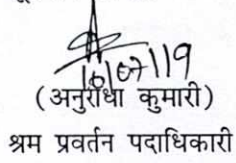 10/07/19
(अनुराधा कुमारी)
श्रम प्रवर्तन पदाधिकारी